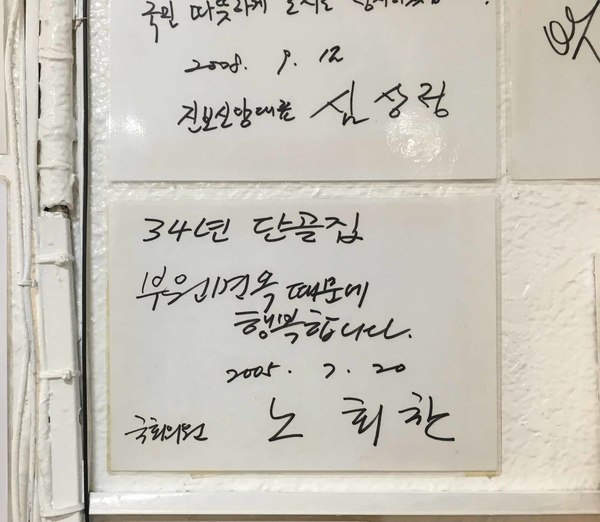 국민 따뜻하게
2008. 9. 12
진보신당대표 심상정
34년 단골집
부원면옥 때문에
행복합니다.
2005. 7. 20
국회의원 노회찬